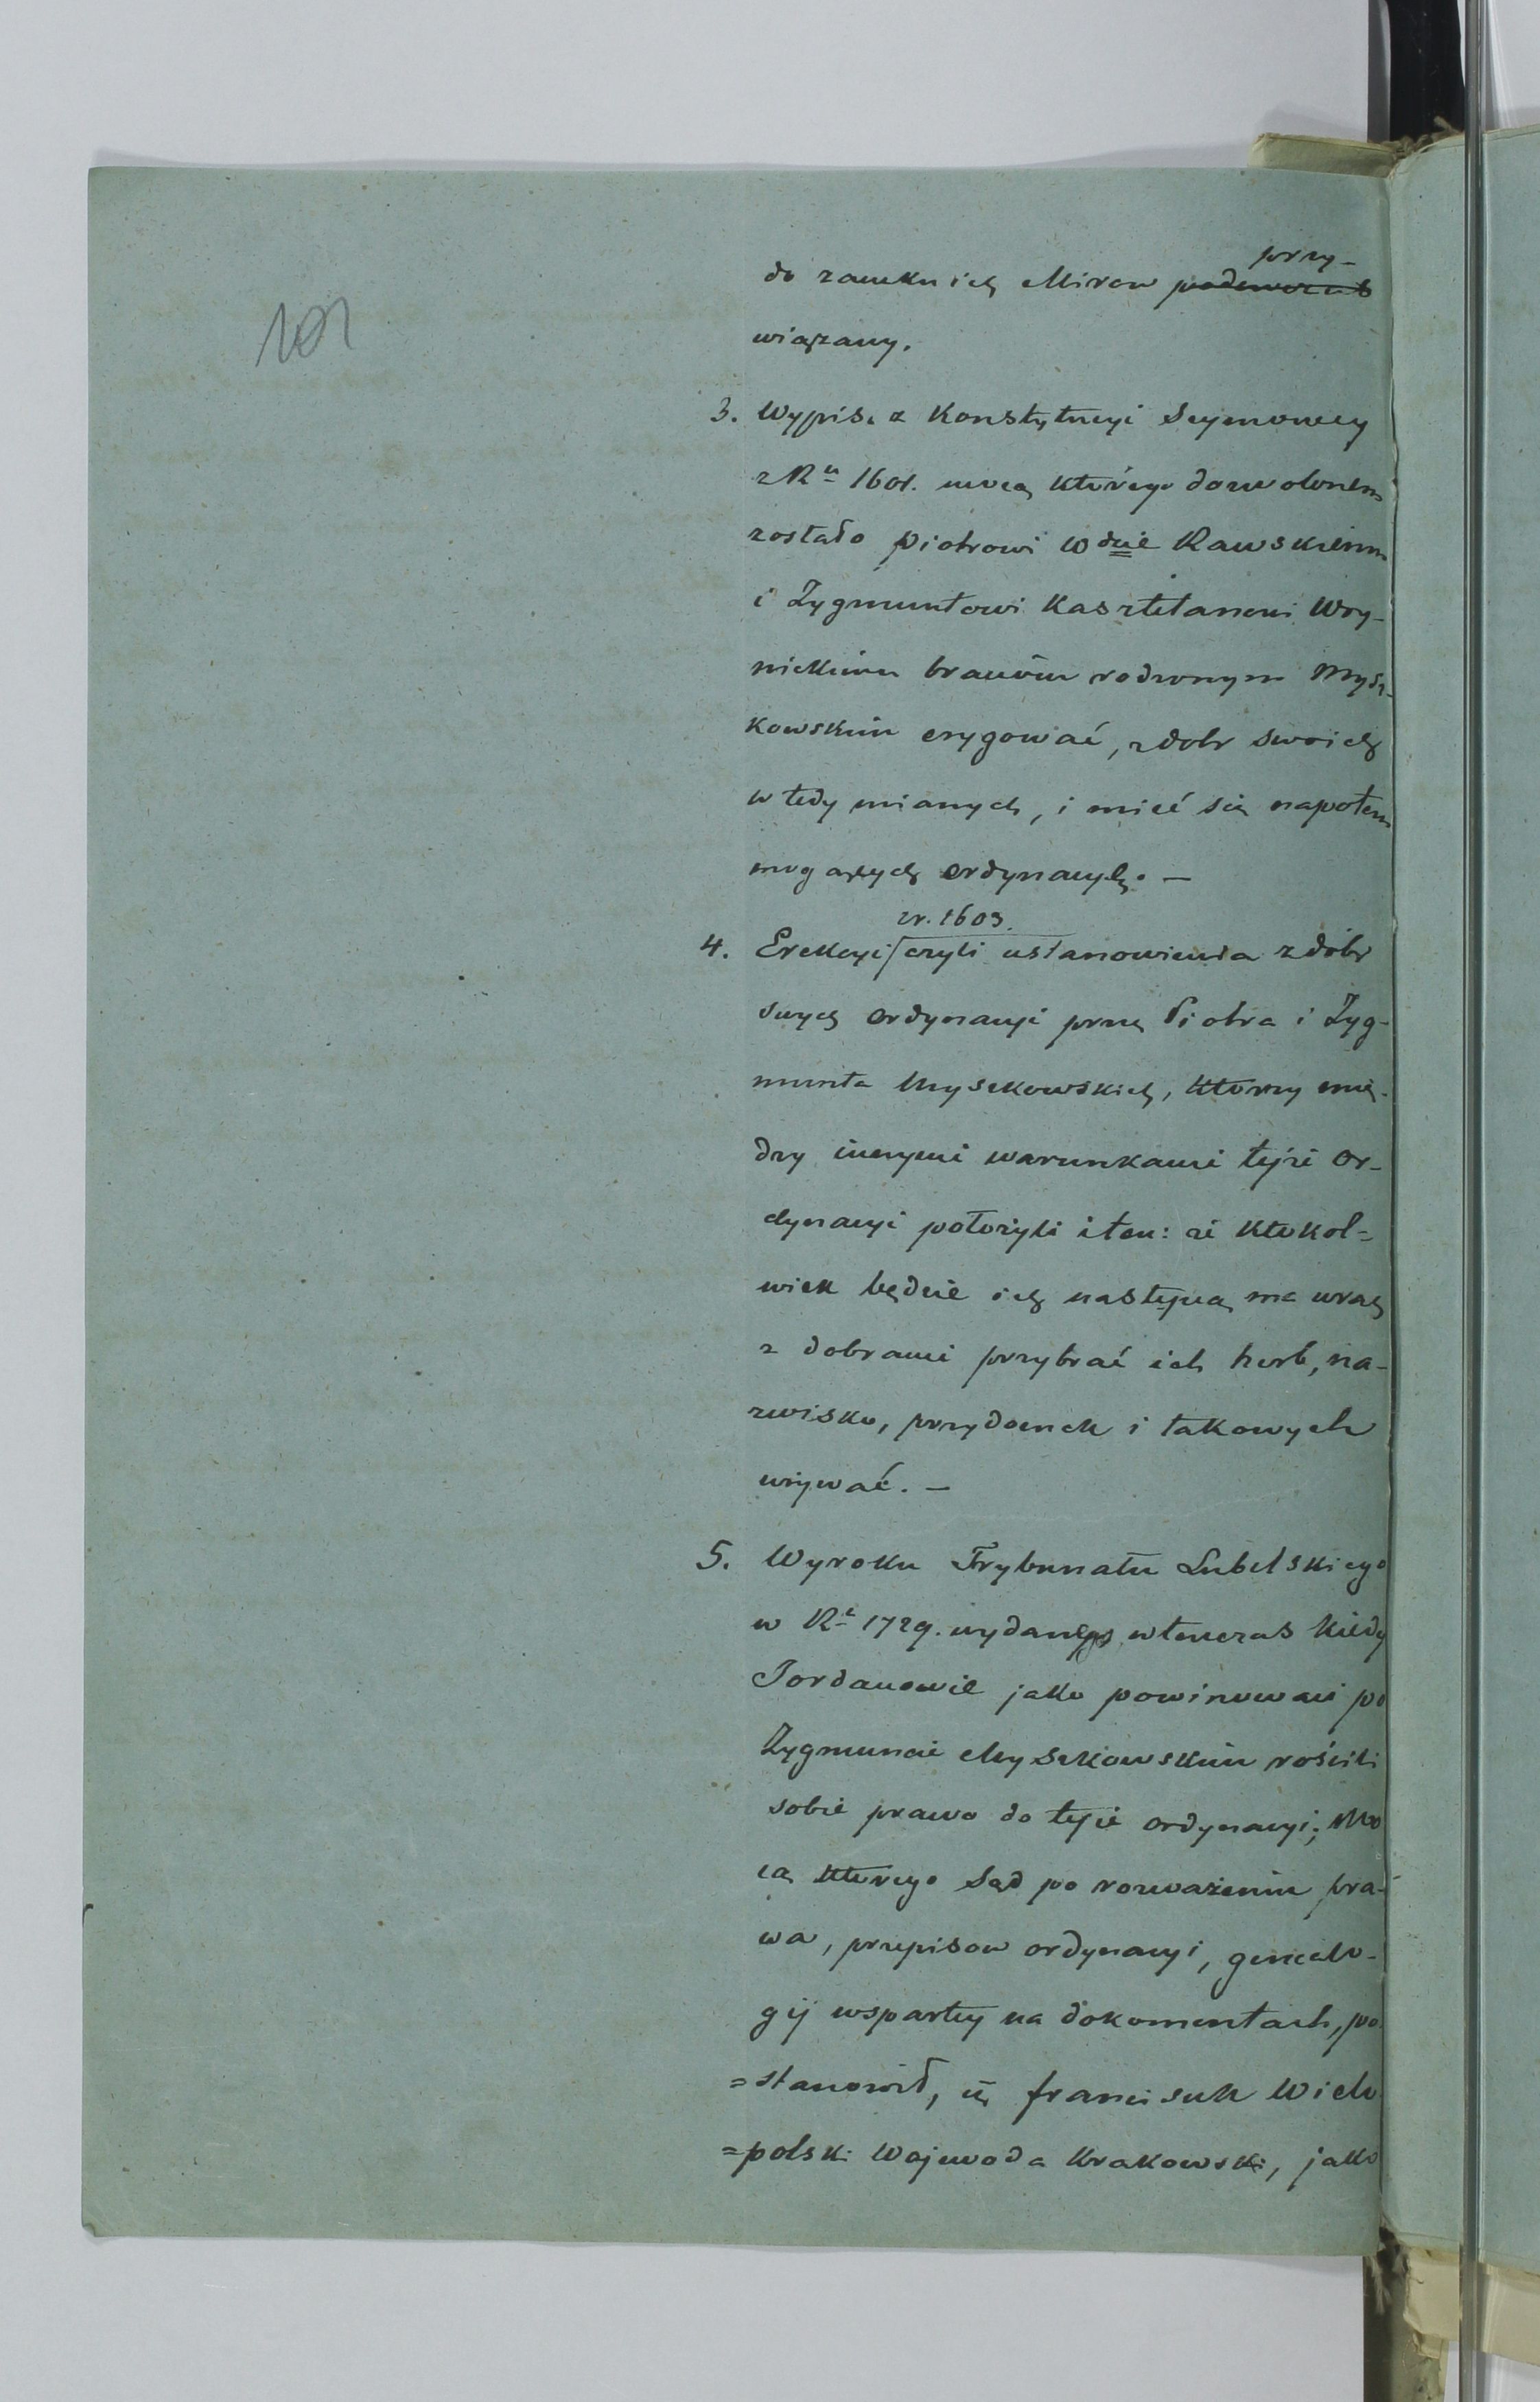 101
przy-
do zamku ich Mirow
wiązany.
3. Wypisu z Konstytucyi Seymowey
z Ru 1601. mocą którego dozwolonem
zostało Piotrowi Wdzie Rawskiemu
i Zygmuntowi Kasztelanowi Woy-
nickiemu braciom rodzonym Mysz-
kowskim erygować, z dobr swoich
wtedy mianych, i mieć się napotem
mogących ordynacyę. —
zr. 1603.
4. Erekcyi czyli ustanowienia z dóbr
swych ordynacyi przez Piotra i Zyg-
munta Myszkowskich, którzy mię-
dzy innymi warunkami tejże Or-
dynacyi położyli i ten: że ktokol=
wiek będzie ich następcą ma wraz
z dobrami przybrać ich herb, na-
zwisko, przydomek i takowych
używać. —
5. Wyroku Trybunału Lubelskiego
w Re 1729. wydanego wtenczas kiedy
Jordanowie jako powinowaci po
Zygmuncie Myszkowskim rościli
sobie prawo do tejże ordynacyi; Mo
cą którego Sąd po rozważeniu pra-
wa, przepisow ordynacyi, genealo-
gij wspartey na dokomentach, po
=stanowił, iż Franciszek Wielo
=polski Wojewoda Krakowski, jako